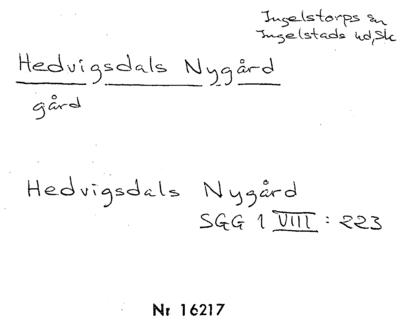 Ingelstorps sn
Ingelstads hd, Sk
Hedvigsdals Nygård
gård
Hedvigsdals Nygård
SGG 1 VIII : 223
Nr 16217